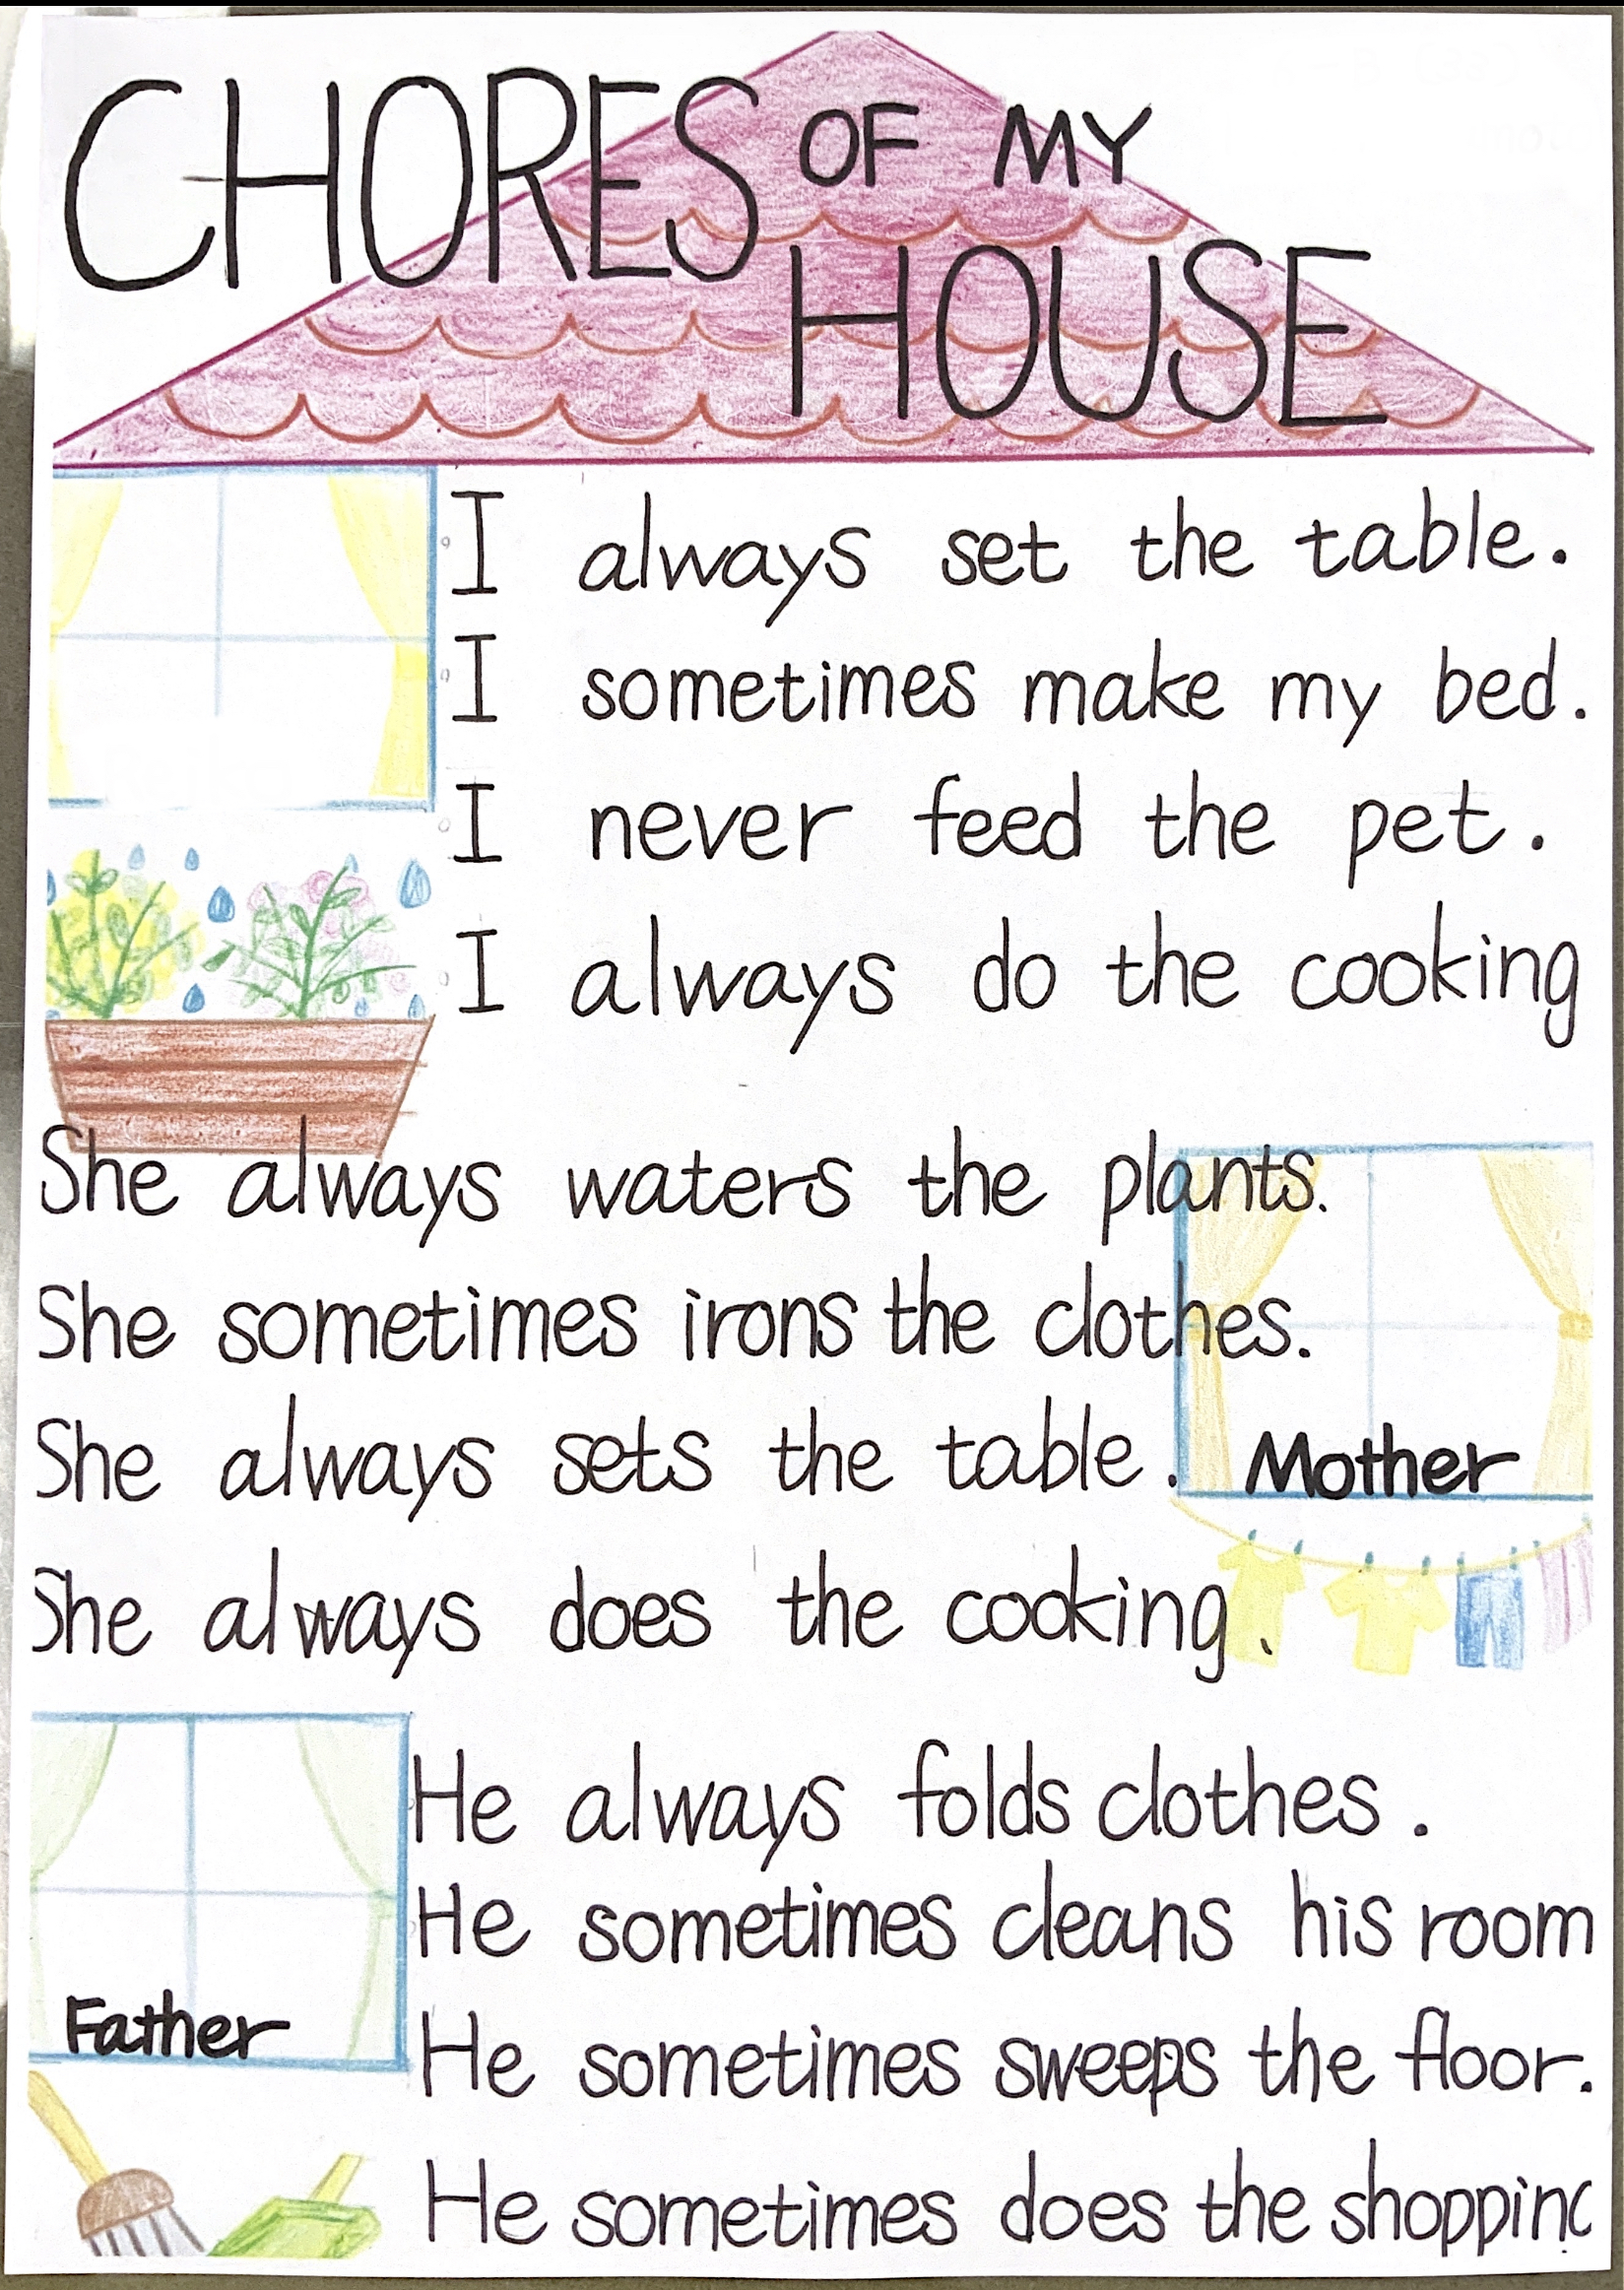 CHORES OF MY
HOUSE
I always set the table.
I sometimes make my bed.
I never feed the pet.
I always do the cooking
She always waters the plants.
She sometimes irons the clothes.
She always sets the table.
Mother
She always does the cooking.
He always folds clothes.
He sometimes cleans his room
Father
He sometimes sweeps the floor.
He sometimes does the shopping